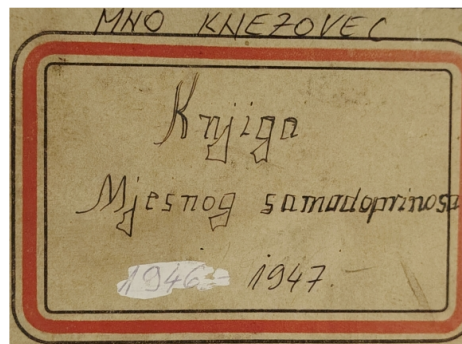 MNO KNEZOVEC
Knjiga
Mjesnog samodoprinosa
1946- 1947.-